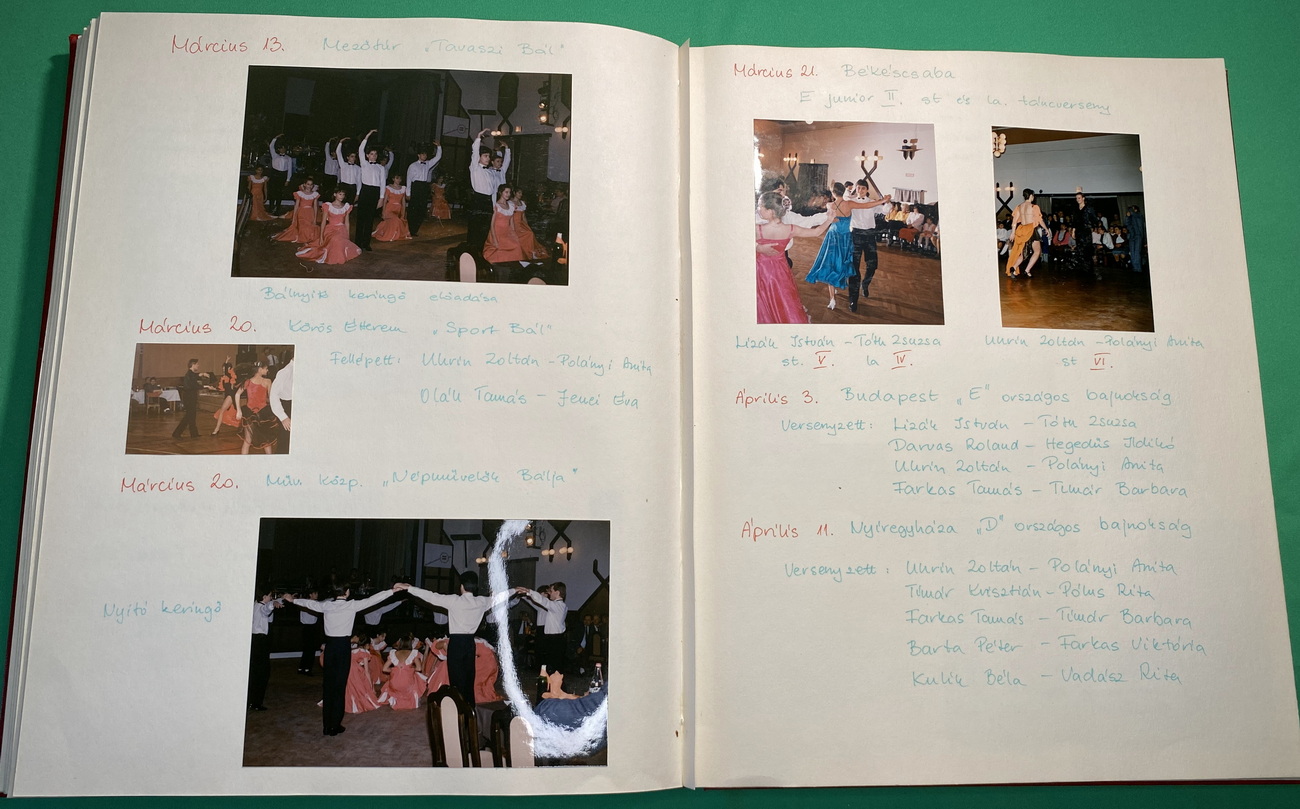 Március 13. Mezőtúr „Tavaszi Bál"
Bálnyitó keringő előadása
Március 20. Körös Étterem „Sport Bál"
Fellépett: Uhrin Zoltán - Polányi Anita
Oláh Tamás - Jenei Éva
Március 20. Műv. Közp. „Népművelők Bálja"
Nyitó keringő
Március 21. Békéscsaba
E junior II. st és la. táncverseny
Lizák István - Tóth Zsuzsa
st. V. la IV.
Uhrin Zoltán - Polányi Anita
st VI.
Április 3. Budapest „E" országos bajnokság
Versenyzett: Lizák István - Tóth Zsuzsa
Darvas Roland - Hegedűs Ildikó
Uhrin Zoltán - Polányi Anita
Farkas Tamás - Timár Barbara
Április 11. Nyíregyháza „D" országos bajnokság
Versenyzett: Uhrin Zoltán - Polányi Anita
Timár Krisztián - Pólus Rita
Farkas Tamás - Timár Barbara
Barta Péter - Farkas Viktória
Kulik Béla - Vadász Rita